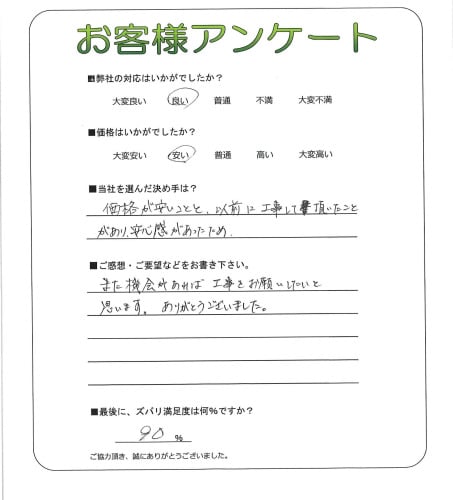 お客様アンケート
■弊社の対応はいかがでしたか?
大変良い 良い 普通 不満 大変不満
■価格はいかがでしたか?
大変安い 安い 普通 高い 大変高い
■当社を選んだ決め手は?
価格が安いことと、以前に工事して頂いたこと
があり、安心感があったため.
■ご感想・ご要望などをお書き下さい。
また機会があれば工事をお願いしたいと
思います。ありがとうございました。
■最後に、ズバリ満足度は何%ですか?
90 %
ご協力頂き、誠にありがとうございました。